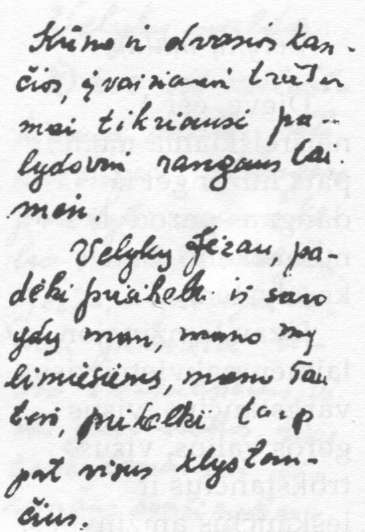 Kūno ir dvasios kan-
čios, įvairiausi trūku
mai tikriausi pa-
lydovai žmogaus lai
mėn.
Velykų Jėzau, pa-
dėki prisikelti iš savo
ydų man, mano my
limiesiems, mano Tau
tai, prikelki taip
pat visus klystan-
čius.